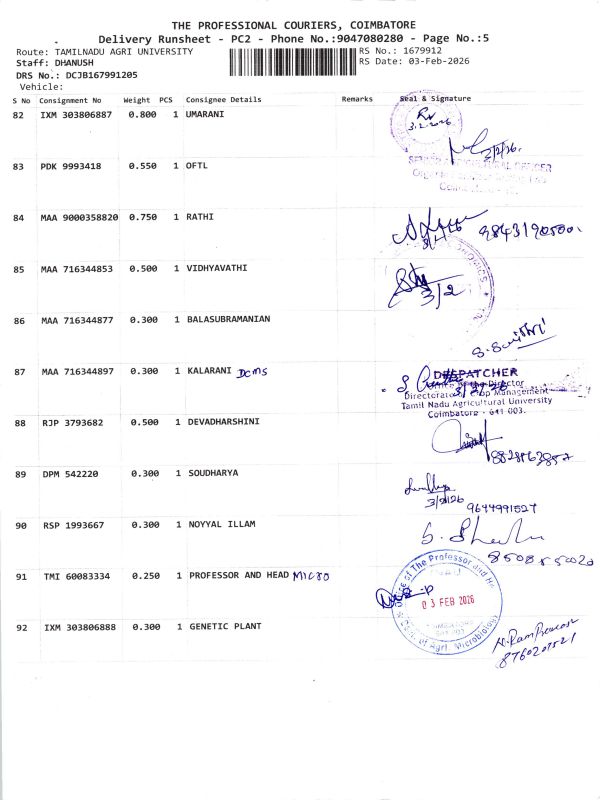 THE PROFESSIONAL COURIERS, COIMBATORE
Delivery Runsheet - PC2 - Phone No.:9047080280 - Page No.:5
Route: TAMILNADU AGRI UNIVERSITY
RS No.: 1679912
Staff: DHANUSH
RS Date: 03-Feb-2026
DRS No.: DCJB167991205
Vehicle:
S No Consignment No Weight PCS Consignee Details Remarks Seal & Signature
82 IXM 303806887 0.800 1 UMARANI
3.2.2026
3/2/26.
83 PDK 9993418 0.550 1 OFTL
84 MAA 9000358820 0.750 1 RATHI
9843190500.
85 MAA 716344853 0.500 1 VIDHYAVATHI
3/2
86 MAA 716344877 0.300 1 BALASUBRAMANIAN
87 MAA 716344897 0.300 1 KALARANI DCMS
DESPATCHER
Office of the Director
Directorate of Crop Management
Tamil Nadu Agricultural University
Coimbatore - 641 003.
88 RJP 3793682 0.500 1 DEVADHARSHINI
89 DPM 542220 0.300 1 SOUDHARYA
3/2/26
9644991527
90 RSP 1993667 0.300 1 NOYYAL ILLAM
8508550020
91 TMI 60083334 0.250 1 PROFESSOR AND HEAD MICRO
Office of The Professor and He
03 FEB 2026
Dept. of Agrl. Microbiology
92 IXM 303806888 0.300 1 GENETIC PLANT
8760207521